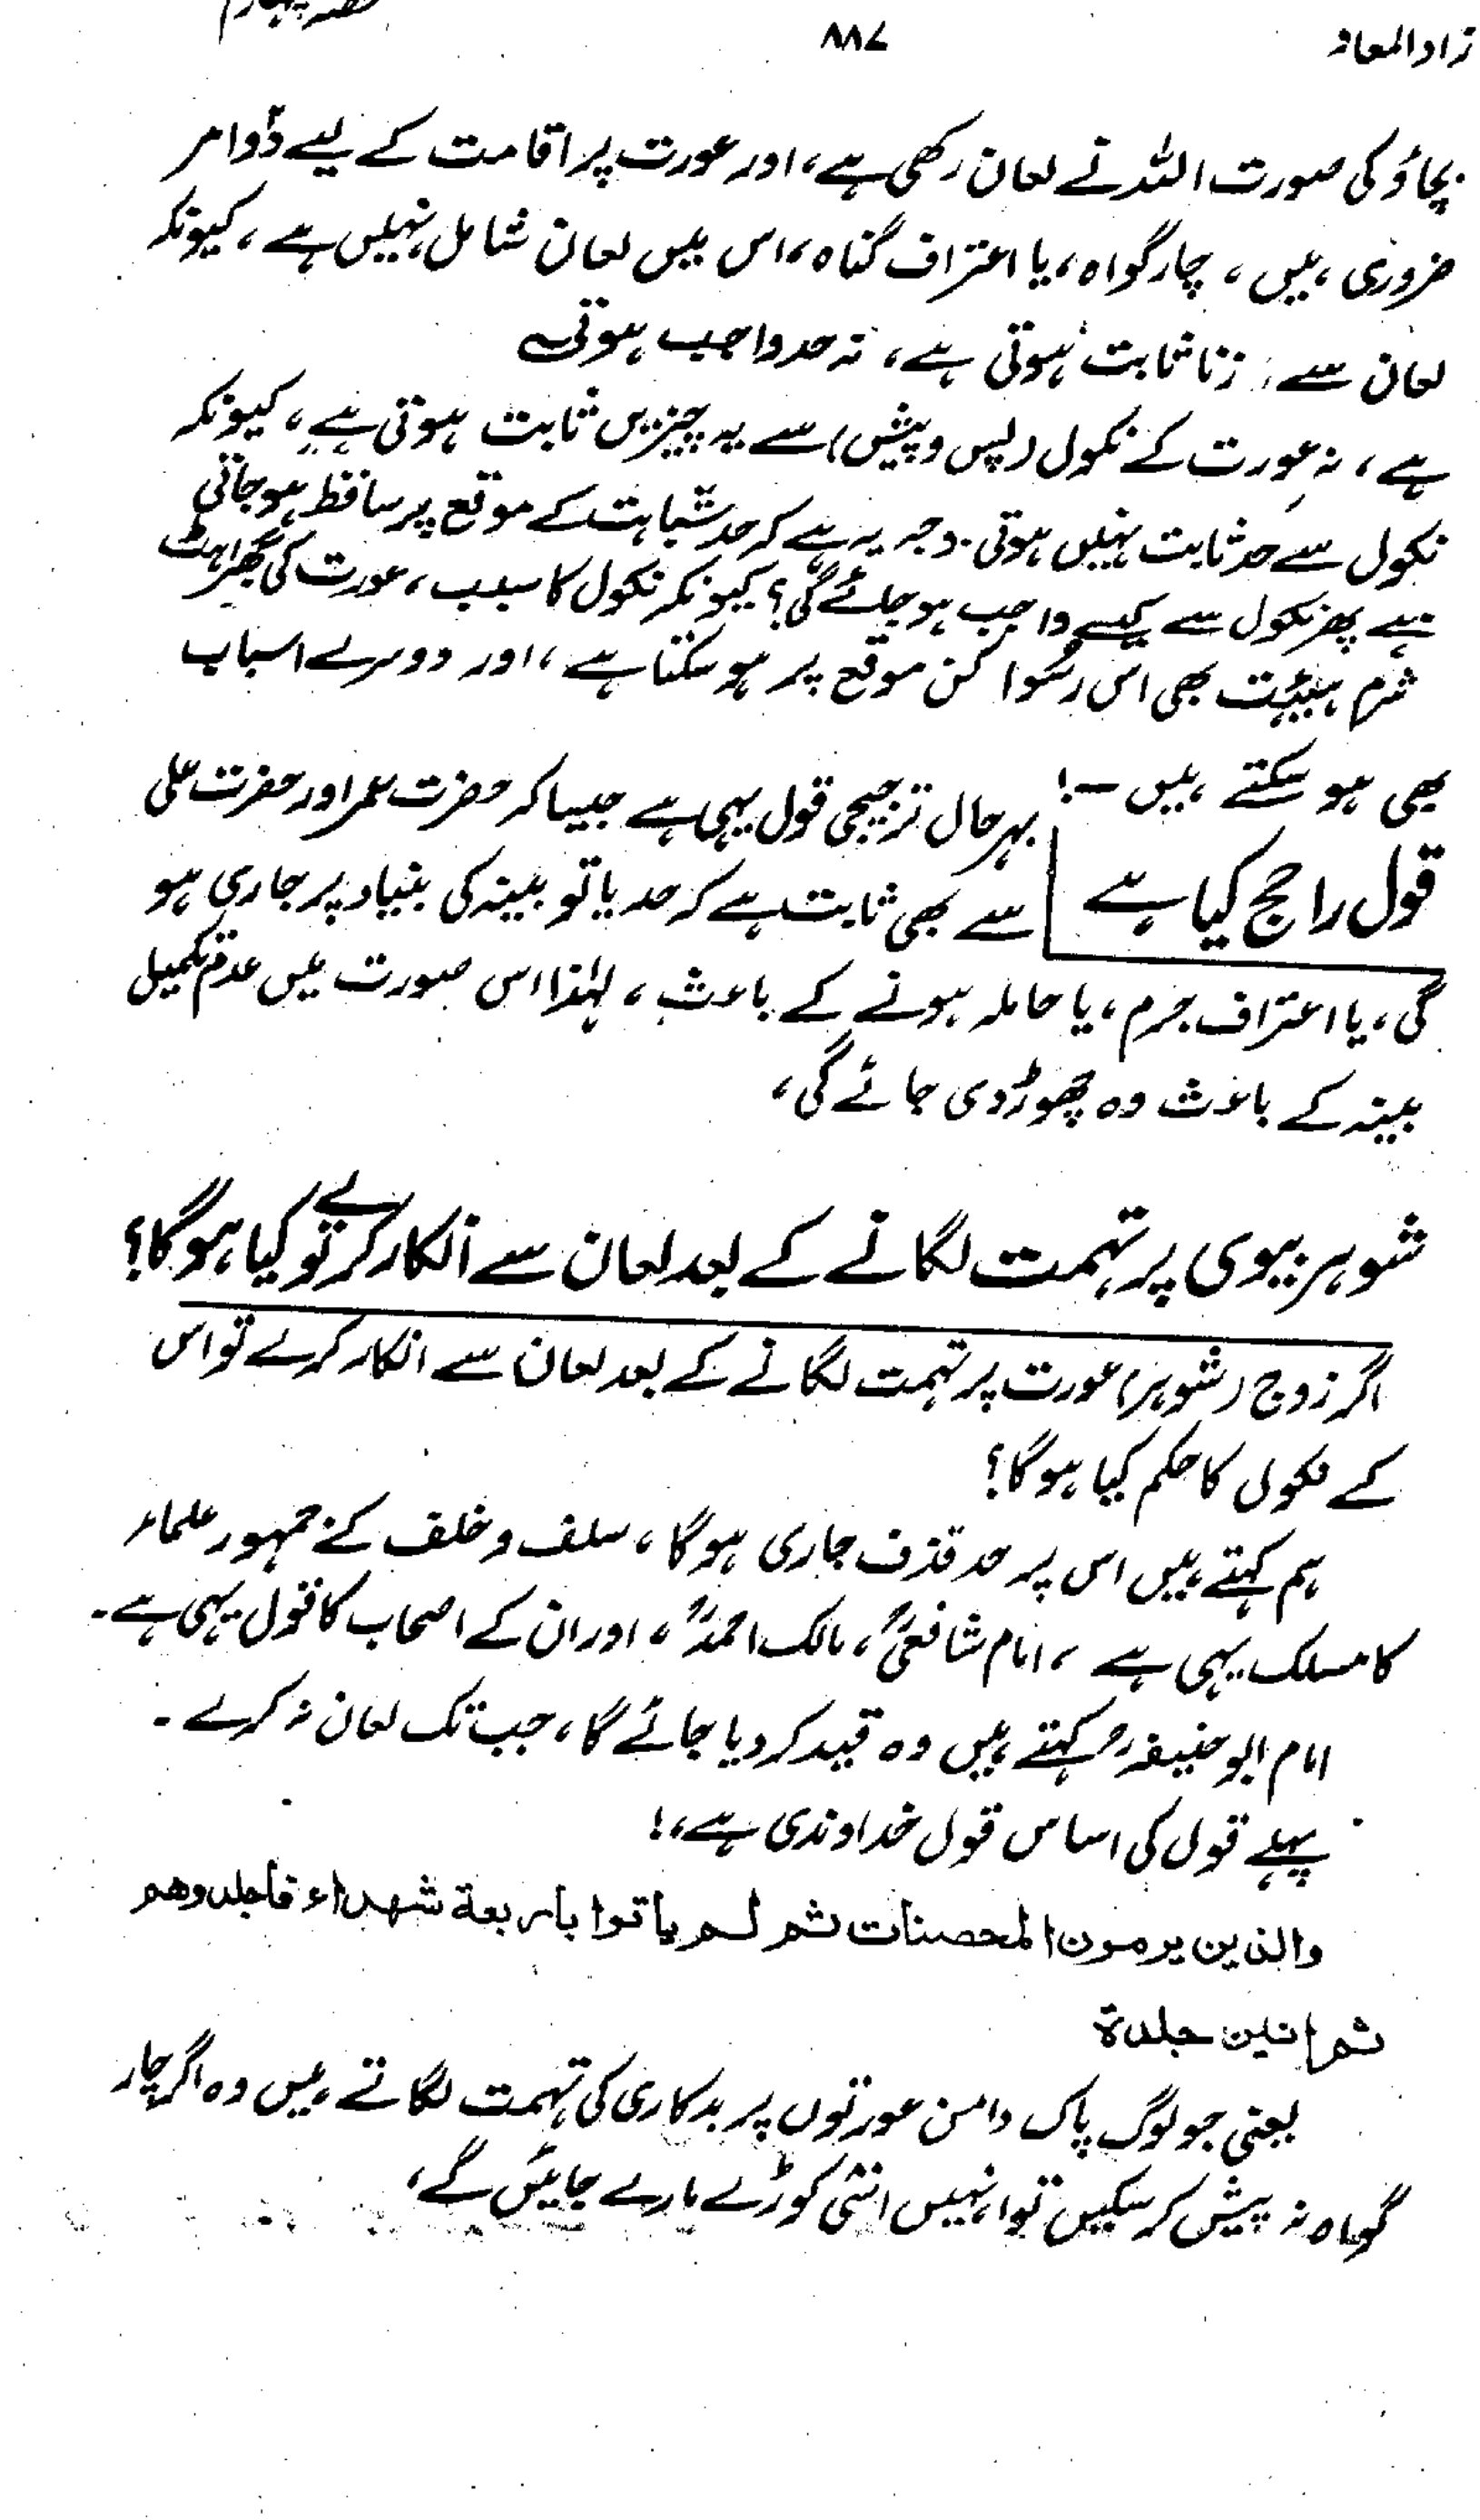 زاد المعاد ۸۸۷ حصہ چہارم
بچاؤ کی صورت اللہ نے لعان رکھی ہے، اور عورت پر اقامت کے لیے دو امر
ضروری ہیں، چار گواہ، یا اعتراف گناہ، اس میں لعان شامل نہیں ہے، کیونکہ
لعان سے، زنا ثابت ہوتی ہے، نہ حد واجب ہوتی
ہے، نہ عورت کے نکول (پس و پیش) سے یہ چیزیں ثابت ہوتی ہے، کیونکہ
نکول سے حد ثابت نہیں ہوتی۔ وجہ یہ ہے کہ حد شباہت کے موقع پر ساقط ہو جاتی
ہے پھر نکول سے کیسے واجب ہو جائے گی؟ کیونکہ نکول کا سبب، عورت کی گھبراہٹ
شرم ہیبت بھی اس رسوا کن موقع پر ہو سکتا ہے، اور دوسرے اسباب
بھی ہو سکتے ہیں۔!
قول راجح کیا ہے
بہرحال ترجیحی قول یہی ہے جیسا کہ حضرت عمر اور حضرت علی
سے بھی ثابت ہے کہ حد یا تو بینہ کی بنیاد پر جاری ہو
گی، یا اعتراف جرم، یا حاملہ ہونے کے باعث، لہٰذا اس صورت میں عدم تکمیل
بینہ کے باعث وہ چھوڑ دی جائے گی،
شوہر بیوی پر تہمت لگانے کے بعد لعان سے انکار کرلے تو کیا ہوگا؟
اگر زوج (شوہر) عورت پر تہمت لگانے کے بعد لعان سے انکار کرے تو اس
کے نکول کا حکم کیا ہوگا؟
ہم کہتے ہیں اس پر حد قذف جاری ہوگا، سلف و خلف کے جمہور علماء
کا مسلک یہی ہے، امام شافعیؒ، مالک احمدؒ، اور ان کے اصحاب کا قول یہی ہے۔
امام ابو حنیفہ رح کہتے ہیں وہ قید کر دیا جائے گا، جب تک لعان نہ کرے۔
پہلے قول کی اساس قول خداوندی ہے،!
والذین یرمون المحصنات ثم لم یاتوا باربعة شهداء فاجلدوهم
ثمانین جلدة
یعنی جو لوگ پاک دامن عورتوں پر بدکاری کی تہمت لگاتے ہیں وہ اگر چار
گواہ نہ پیش کر سکیں تو انہیں اسّی کوڑے مارے جائیں گے،